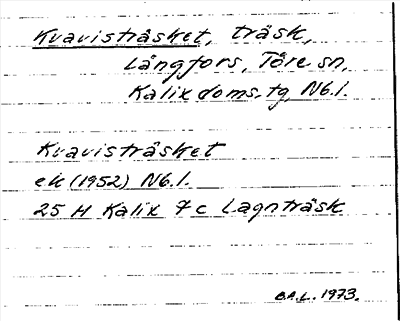 Kvavisträsket, träsk,
Långfors, Töre sn,
Kalix doms. tg, Nb.l.
Kvavisträsket
ek (1952) Nb.l.
25 M Kalix 7c Lagnträsk
B.A.L. 1973.